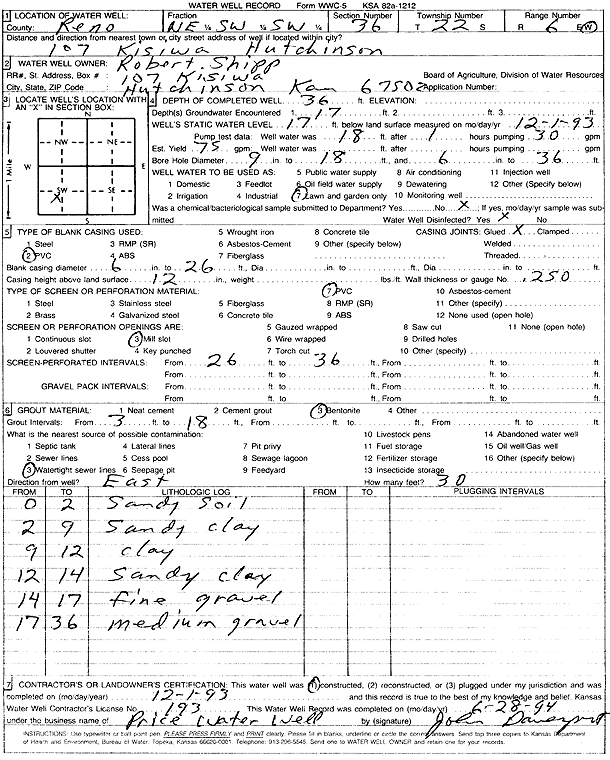 WATER WELL RECORD Form WWC-5 KSA 82a-1212
1 LOCATION OF WATER WELL: Fraction Section Number Township Number Range Number
County: Reno NE ¼ SW ¼ SW ¼ 36 T 22 S R 6 E(W)
Distance and direction from nearest town or city street address of well if located within city?
107 Kisiwa Hutchinson
2 WATER WELL OWNER: Robert Shipp
RR#, St. Address, Box # : 107 Kisiwa Board of Agriculture, Division of Water Resources
City, State, ZIP Code : Hutchinson Kan 67502 Application Number:
3 LOCATE WELL'S LOCATION WITH AN "X" IN SECTION BOX: 4 DEPTH OF COMPLETED WELL 36 ft. ELEVATION:
Depth(s) Groundwater Encountered 1. 17 ft. 2. ft. 3. ft.
WELL'S STATIC WATER LEVEL 17 ft. below land surface measured on mo/day/yr 12-1-93
Pump test data: Well water was 18 ft. after 1 hours pumping 30 gpm
Est. Yield 75 gpm: Well water was ft. after hours pumping gpm
Bore Hole Diameter 9 in. to 18 ft., and 6 in. to 36 ft.
WELL WATER TO BE USED AS: 5 Public water supply 8 Air conditioning 11 Injection well
1 Domestic 3 Feedlot 6 Oil field water supply 9 Dewatering 12 Other (Specify below)
2 Irrigation 4 Industrial 7 Lawn and garden only 10 Monitoring well
Was a chemical/bacteriological sample submitted to Department? Yes No X ; If yes, mo/day/yr sample was sub-
mitted Water Well Disinfected? Yes X No
N
1 Mile
NW NE
W E
SW SE
X
S
5 TYPE OF BLANK CASING USED: 5 Wrought iron 8 Concrete tile CASING JOINTS: Glued X Clamped
1 Steel 3 RMP (SR) 6 Asbestos-Cement 9 Other (specify below) Welded
2 PVC 4 ABS 7 Fiberglass Threaded
Blank casing diameter 6 in. to 26 ft., Dia in. to ft., Dia in. to ft.
Casing height above land surface 12 in., weight lbs./ft. Wall thickness or gauge No. .250
TYPE OF SCREEN OR PERFORATION MATERIAL: 7 PVC 10 Asbestos-cement
1 Steel 3 Stainless steel 5 Fiberglass 8 RMP (SR) 11 Other (specify)
2 Brass 4 Galvanized steel 6 Concrete tile 9 ABS 12 None used (open hole)
SCREEN OR PERFORATION OPENINGS ARE: 5 Gauzed wrapped 8 Saw cut 11 None (open hole)
1 Continuous slot 3 Mill slot 6 Wire wrapped 9 Drilled holes
2 Louvered shutter 4 Key punched 7 Torch cut 10 Other (specify)
SCREEN-PERFORATED INTERVALS: From 26 ft. to 36 ft., From ft. to ft.
From ft. to ft., From ft. to ft.
GRAVEL PACK INTERVALS: From ft. to ft., From ft. to ft.
From ft. to ft., From ft. to ft.
6 GROUT MATERIAL: 1 Neat cement 2 Cement grout 3 Bentonite 4 Other
Grout Intervals: From 3 ft. to 18 ft., From ft. to ft., From ft. to ft.
What is the nearest source of possible contamination: 10 Livestock pens 14 Abandoned water well
1 Septic tank 4 Lateral lines 7 Pit privy 11 Fuel storage 15 Oil well/Gas well
2 Sewer lines 5 Cess pool 8 Sewage lagoon 12 Fertilizer storage 16 Other (specify below)
3 Watertight sewer lines 6 Seepage pit 9 Feedyard 13 Insecticide storage
Direction from well? East How many feet? 30
FROM TO LITHOLOGIC LOG FROM TO PLUGGING INTERVALS
0 2 Sandy Soil
2 9 Sandy clay
9 12 clay
12 14 Sandy clay
14 17 fine gravel
17 36 medium gravel
7 CONTRACTOR'S OR LANDOWNER'S CERTIFICATION: This water well was (1) constructed, (2) reconstructed, or (3) plugged under my jurisdiction and was
completed on (mo/day/year) 12-1-93 and this record is true to the best of my knowledge and belief. Kansas
Water Well Contractor's License No. 193 This Water Well Record was completed on (mo/day/yr) 6-28-94
under the business name of Price Water Well by (signature) John Davenport
INSTRUCTIONS: Use typewriter or ball point pen. PLEASE PRESS FIRMLY and PRINT clearly. Please fill in blanks, underline or circle the correct answers. Send top three copies to Kansas Department
of Health and Environment, Bureau of Water, Topeka, Kansas 66620-0001. Telephone: 913-296-5545. Send one to WATER WELL OWNER and retain one for your records.